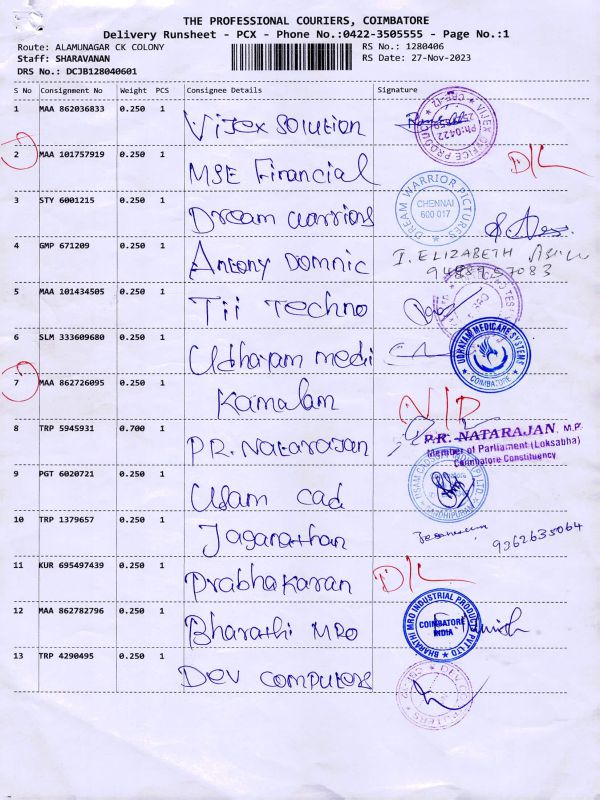 THE PROFESSIONAL COURIERS, COIMBATORE
Delivery Runsheet - PCX - Phone No.:0422-3505555 - Page No.:1
Route: ALAMUNAGAR CK COLONY RS No.: 1280406
Staff: SHARAVANAN RS Date: 27-Nov-2023
DRS No.: DCJB128040601
S No Consignment No Weight PCS Consignee Details Signature
1 MAA 862036833 0.250 1 Vijex Solution
VIJEX OFFICE PRODUCT
Ph:0422
CBE-12
2 MAA 101757919 0.250 1 MSE Financial D/L
3 STY 6001215 0.250 1 Dream warriors
DREAM WARRIOR PICTURES
CHENNAI
600 017
4 GMP 671209 0.250 1 Antony Domnic I. ELIZABETH
5 MAA 101434505 0.250 1 Tii Techno
6 SLM 333609680 0.250 1 Udhayam medii
UDHAYAM MEDICARE SYSTEMS
COIMBATORE
7 MAA 862726095 0.250 1 Kamalam N/D
8 TRP 5945931 0.700 1 P.R. Natarajan
P.R. NATARAJAN, M.P.
Member of Parliament (Loksabha)
Coimbatore Constituency
9 PGT 6020721 0.250 1 Usam cad
10 TRP 1379657 0.250 1 Jaganathan 9262635064
11 KUR 695497439 0.250 1 Prabhakaran D/L
12 MAA 862782796 0.250 1 Bharathi MRO
BHARATHI MRO INDUSTRIAL PRODUCTS PVT LTD
COIMBATORE
INDIA
13 TRP 4290495 0.250 1 Dev computers